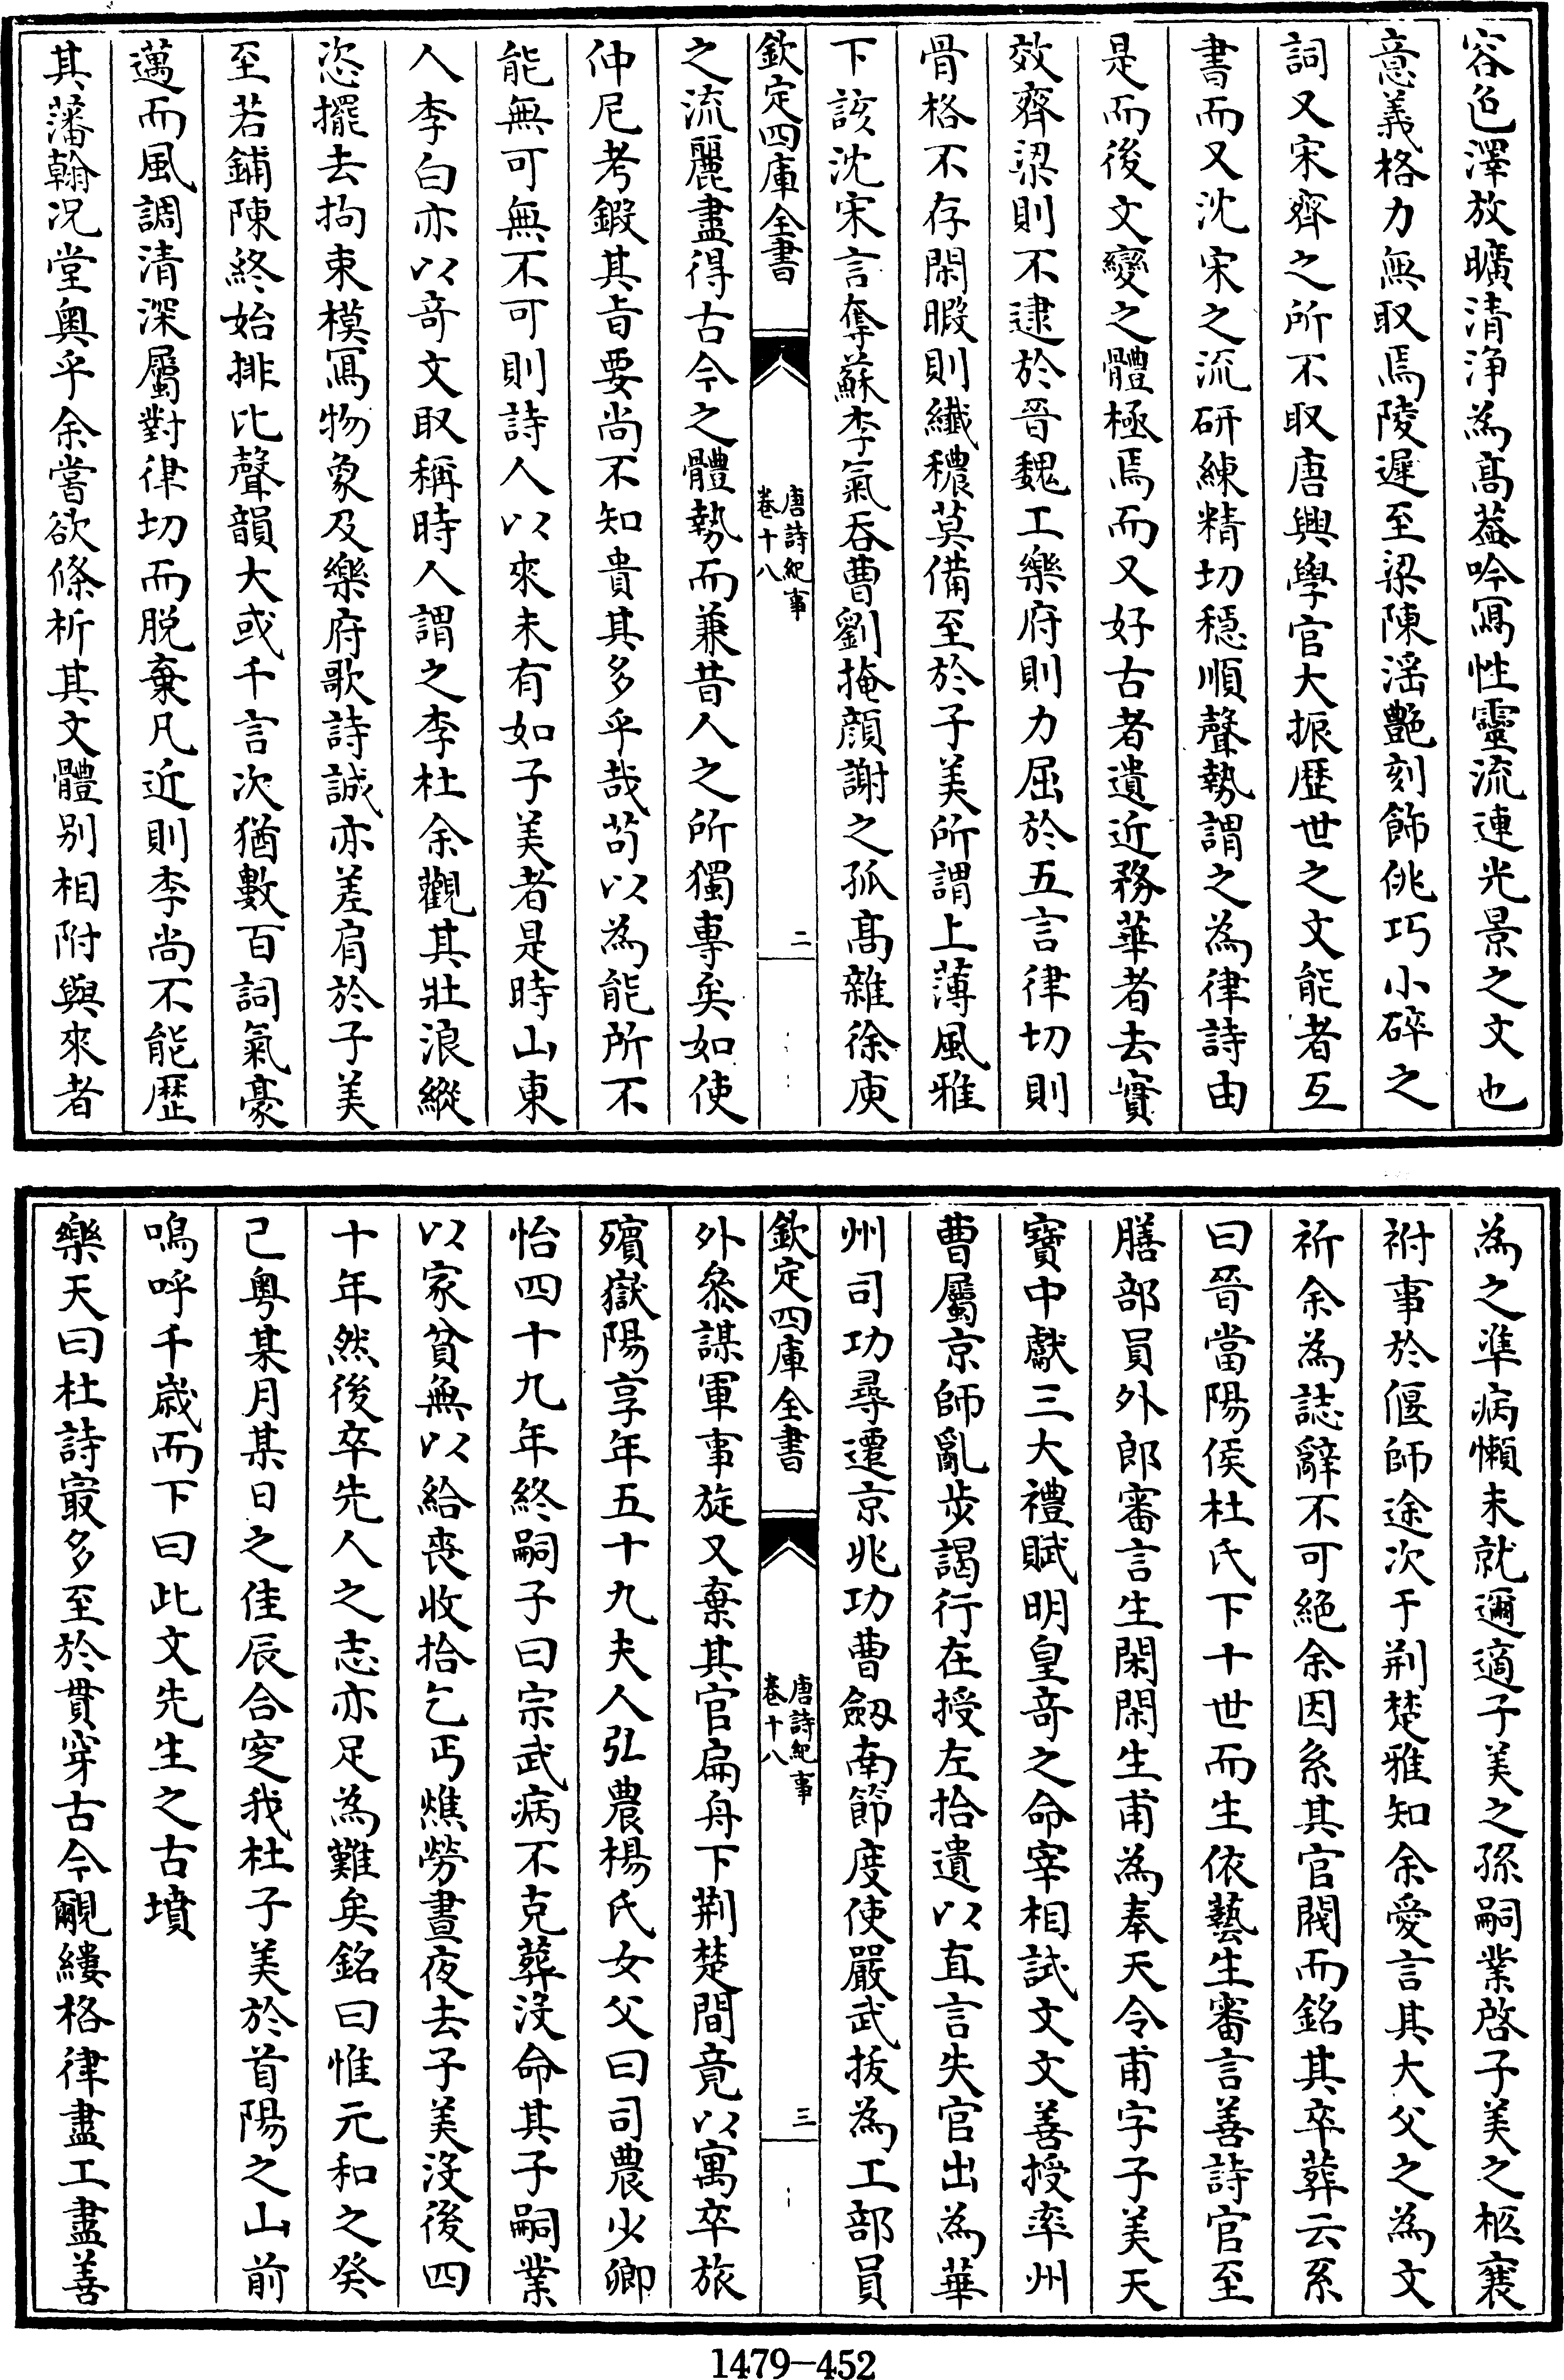 容色澤放曠清浄為高葢吟冩性靈流連光景之文也
意義格力無取焉陵遲至梁陳滛艶刻飾佻巧小碎之
詞又宋齊之所不取唐興學官大振歴世之文能者互
書而又沈宋之流研練精切穏順聲勢謂之為律詩由
是而後文變之體極焉而又好古者遺近務華者去實
效齊梁則不逮於晉魏工樂府則力屈於五言律切則
骨格不存閑暇則纖穠莫備至於子美所謂上薄風雅
下該沈宋言奪蘇李氣吞曹劉掩顔謝之孤髙雜徐庾
欽定四庫全書
唐詩紀事
卷十八
二
之流麗盡得古今之體勢而兼昔人之所獨專矣如使
仲尼考鍛其㫖要尚不知貴其多乎哉茍以為能所不
能無可無不可則詩人以來未有如子美者是時山東
人李白亦以竒文取稱時人謂之李杜余觀其壯浪縱
恣擺去拘束模冩物象及樂府歌詩誠亦差肩於子美
至若鋪陳終始排比聲韻大或千言次猶數百詞氣豪
邁而風調清深屬對律切而脱棄凡近則李尚不能歴
其藩翰况堂奥乎余嘗欲條析其文體别相附與來者
為之凖病懶未就邇適子美之孫嗣業啓子美之柩襄
祔事於偃師途次于荆楚雅知余愛言其大父之為文
祈余為誌辭不可絶余因系其官閥而銘其卒葬云系
曰晉當陽侯杜氏下十世而生依藝生審言善詩官至
膳部員外郎審言生閑閑生甫為奉天令甫字子美天
寳中獻三大禮賦明皇竒之命宰相試文文善授率州
曹屬京師亂步謁行在授左拾遺以直言失官出為華
州司功尋遷京兆功曹劔南節度使嚴武拔為工部員
欽定四庫全書
唐詩紀事
卷十八
三
外叅謀軍事旋又棄其官扁舟下荆楚間竟以寓卒旅
殯嶽陽享年五十九夫人弘農楊氏女父曰司農少卿
怡四十九年終嗣子曰宗武病不克葬沒命其子嗣業
以家貧無以給喪收拾乞丐燋勞晝夜去子美沒後四
十年然後卒先人之志亦足為難矣銘曰惟元和之癸
已粤某月某日之佳辰合窆我杜子美於首陽之山前
嗚呼千歳而下曰此文先生之古墳
樂天曰杜詩㝡多至於貫穿古今覼縷格律盡工盡善
1479—452